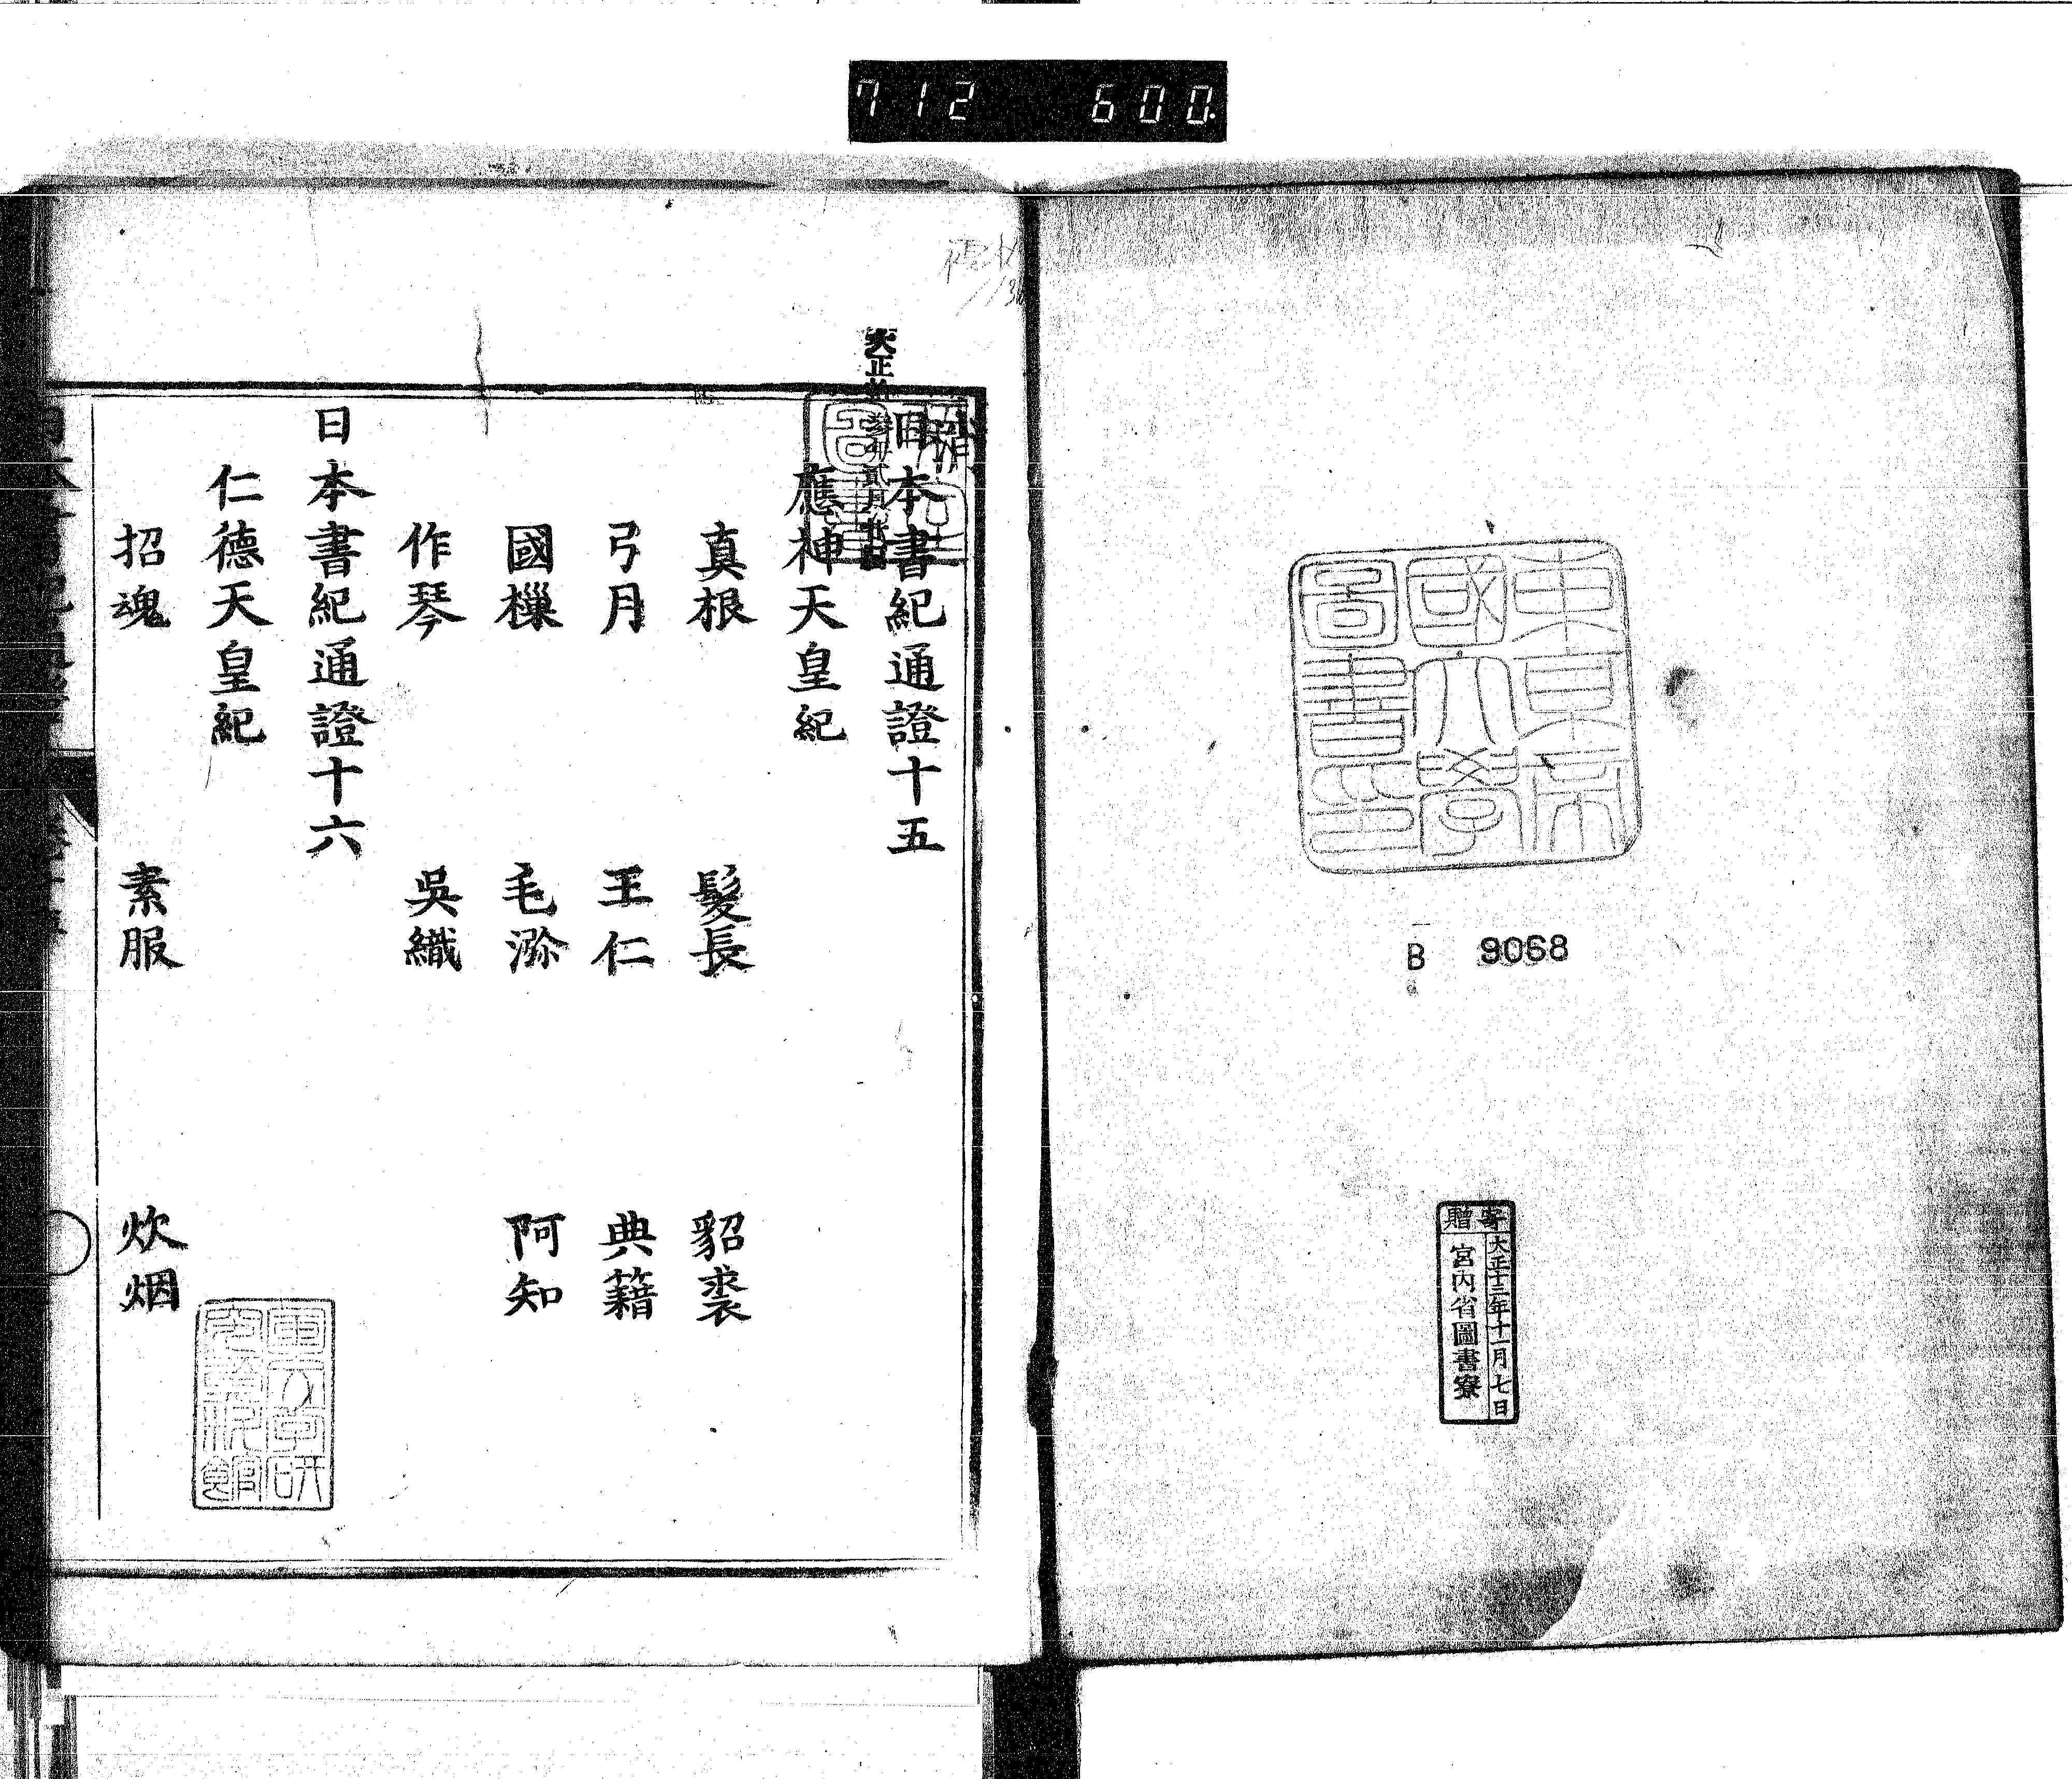 712 600.
東京帝
國大學
圖書印
B 9068
寄贈
大正十三年十一月七日
宮内省圖書寮
日本書紀通證十五
應神天皇紀
真根 髮長 貂裘
弓月 王仁 典籍
國樔 毛瀰 阿知
作琴 吳織
日本書紀通證十六
仁德天皇紀
招魂 素服 炊烟